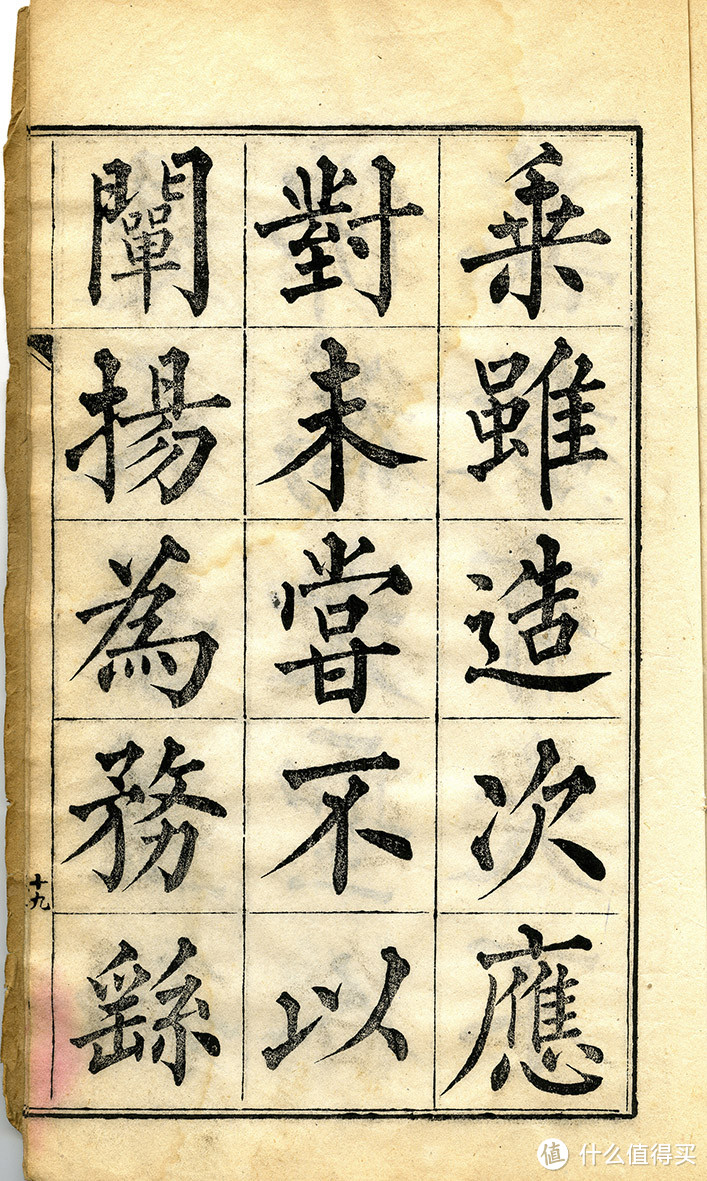 乗雖造次應
對未嘗不以
闡揚為務繇
十九
值 什么值得买